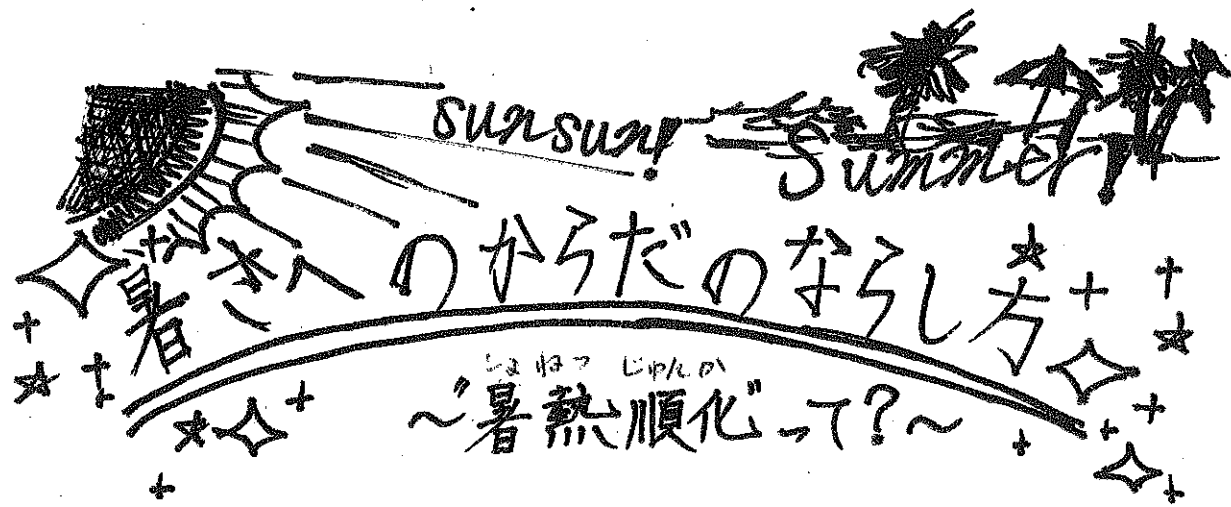 sunsun!
Summer
暑さへのからだのならし方
しょねつ じゅんか
〜"暑熱順化"って?〜